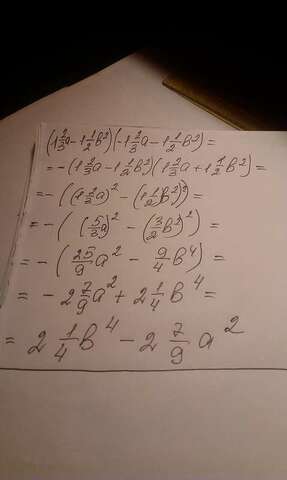 (1 2/3 a - 1 1/2 b²)(-1 2/3 a - 1 1/2 b²) =
= -(1 2/3 a - 1 1/2 b²)(1 2/3 a + 1 1/2 b²) =
= -((1 2/3 a)² - (1 1/2 b²)²) =
= -((5/3 a)² - (3/2 b²)²) =
= -(25/9 a² - 9/4 b⁴) =
= -2 7/9 a² + 2 1/4 b⁴ =
= 2 1/4 b⁴ - 2 7/9 a²